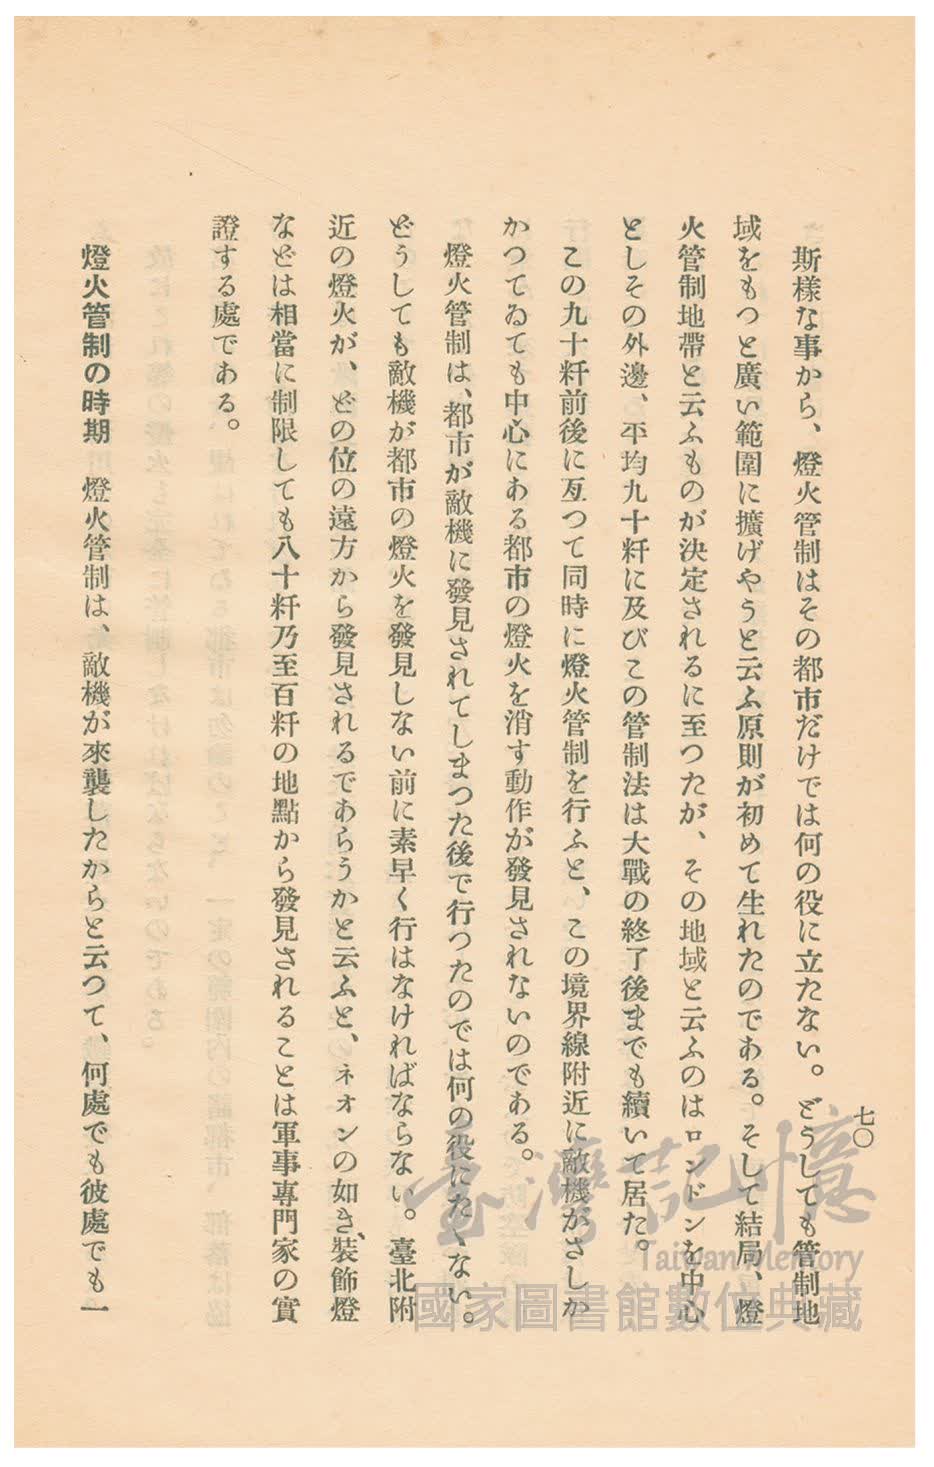 七〇
斯樣な事から、燈火管制はその都市だけでは何の役に立たない。どうしても管制地
域をもつと廣い範圍に擴げやうと云ふ原則が初めて生れたのである。そして結局、燈
火管制地帶と云ふものが決定されるに至つたが、その地域と云ふのはロンドンを中心
としその外邊、平均九十粁に及びこの管制法は大戰の終了後までも續いて居た。
この九十粁前後に亙つて同時に燈火管制を行ふと、この境界線附近に敵機がさしか
かつてゐても中心にある都市の燈火を消す動作が發見されないのである。
燈火管制は、都市が敵機に發見されてしまつた後で行つたのでは何の役にたゝない。
どうしても敵機が都市の燈火を發見しない前に素早く行はなければならない。臺北附
近の燈火が、どの位の遠方から發見されるであらうかと云ふと、ネオンの如き、裝飾燈
などは相當に制限しても八十粁乃至百粁の地點から發見されることは軍事專門家の實
證する處である。
燈火管制の時期 燈火管制は、敵機が來襲したからと云つて、何處でも彼處でも一
臺灣記憶
Taiwan Memory
國家圖書館數位典藏